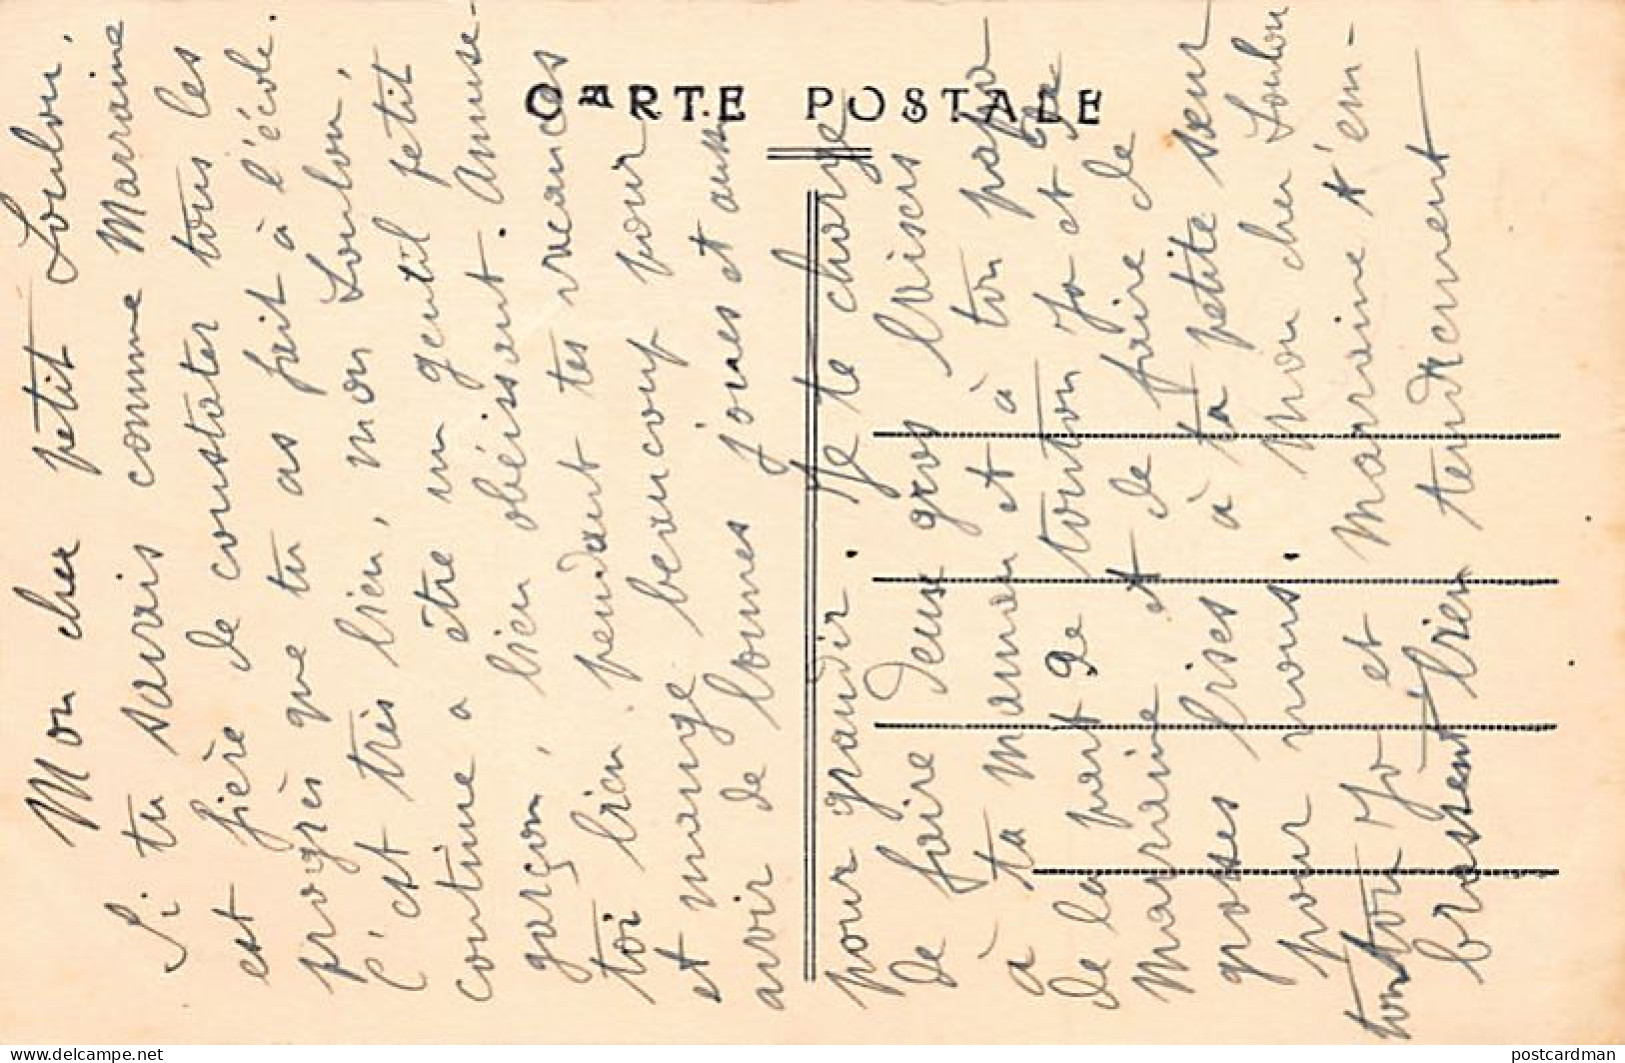 CARTE POSTALE
Mon cher petit Loulou.
Si tu savais comme Marraine
est fière de constater tous les
progrès que tu as fait à l'école.
C'est très bien, mon Loulou,
continue a être un gentil petit
garçon, bien obéissant. Amuse-
toi bien pendant tes vacances
et mange beaucoup pour
avoir de bonnes joues et aussi
pour grandir. Je te charge
de faire deux gros baisers
à ta maman et à ton papa
de la part de tonton Jo et de
Marraine et de faire de
grosses bises à ta petite sœur
pour nous. Mon cher Loulou
tonton Jo et Marraine t'em-
brassent bien tendrement
delcampe.net
postcardman